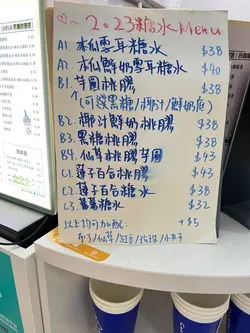 ♡~ 2023糖水 Menu
A1. 木瓜雪耳糖水 $38
A2. 木瓜鮮奶雪耳糖水 $40
B1. 芋圓桃膠 $38
(可袋黑糖/椰汁/鮮奶底)
B2. 椰汁鮮奶桃膠 $38
B3. 黑糖桃膠 $38
B4. 仙草桃膠芋圓 $43
C1. 蓮子百合桃膠 $43
C2. 蓮子百合糖水 $38
C3. 蕃薯糖水 $32
以上均可加配: +$5
布丁/仙草/紅豆/珍珠/小丸子